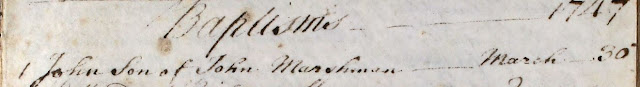 Baptisms 1747
1 John Son of John Marshman March 30